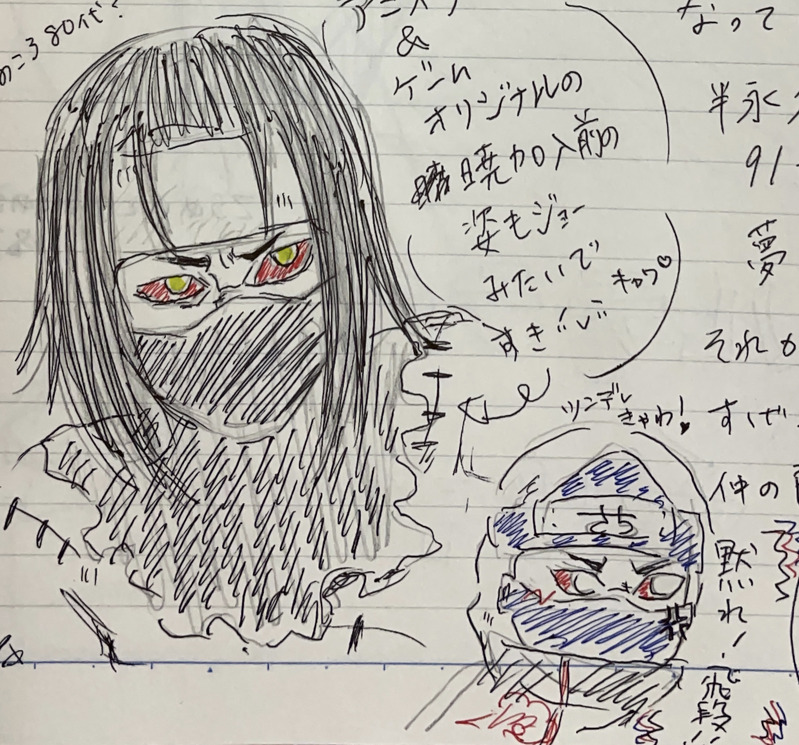 のころ80代?
アニメ
&
ゲーム
オリジナルの
暁加入前の
姿もジョー
みたいで
キャワ♡
すき
ツンデレ
きゃわ!
黙れ!飛段!!
なって
半永
91
夢
それか
すげ
仲の